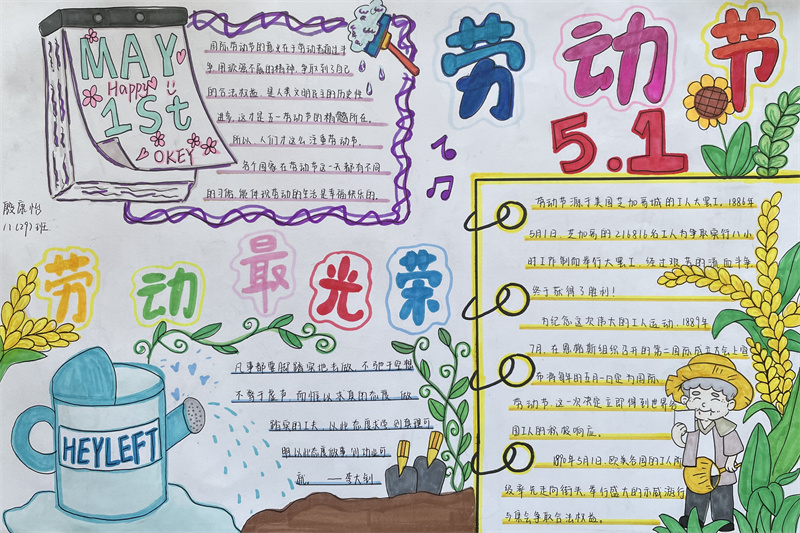 MAY
Happy
1St
OKEY
国际劳动节的意义在于劳动者通过斗
争,用顽强不屈的精神,争取到了自己
的合法权益,是人类文明民主的历史性
进步,这才是五一劳动节的精髓所在。
所以,人们才这么注重劳动节。
各个国家在劳动节这一天都有不同
的习俗,能体现劳动的生活是幸福快乐的。
劳动节
5.1
殷康怡
11(29)班
劳动最光荣
凡事都要脚踏实地去做,不驰于空想
不骛于虚声,而惟以求真的态度做
踏实的工夫。以此态度求学,则真理可
明,以此态度做事,则功业可
就。——李大钊
HEYLEFT
劳动节源于美国芝加哥城的工人大罢工。1886年
5月1日,芝加哥的216816名工人为争取实行八小
时工作制而举行大罢工,经过艰苦的流血斗争
终于获得了胜利!
为纪念这次伟大的工人运动,1889年
7月,在恩格斯组织召开的第二国际成立大会上宣
布将每年的五月一日定为国际
劳动节。这一决定立即得到世界
国工人的积极响应。
1890年5月1日,欧美各国的工人阶
级率先走向街头,举行盛大的示威游行
与集会,争取合法权益。